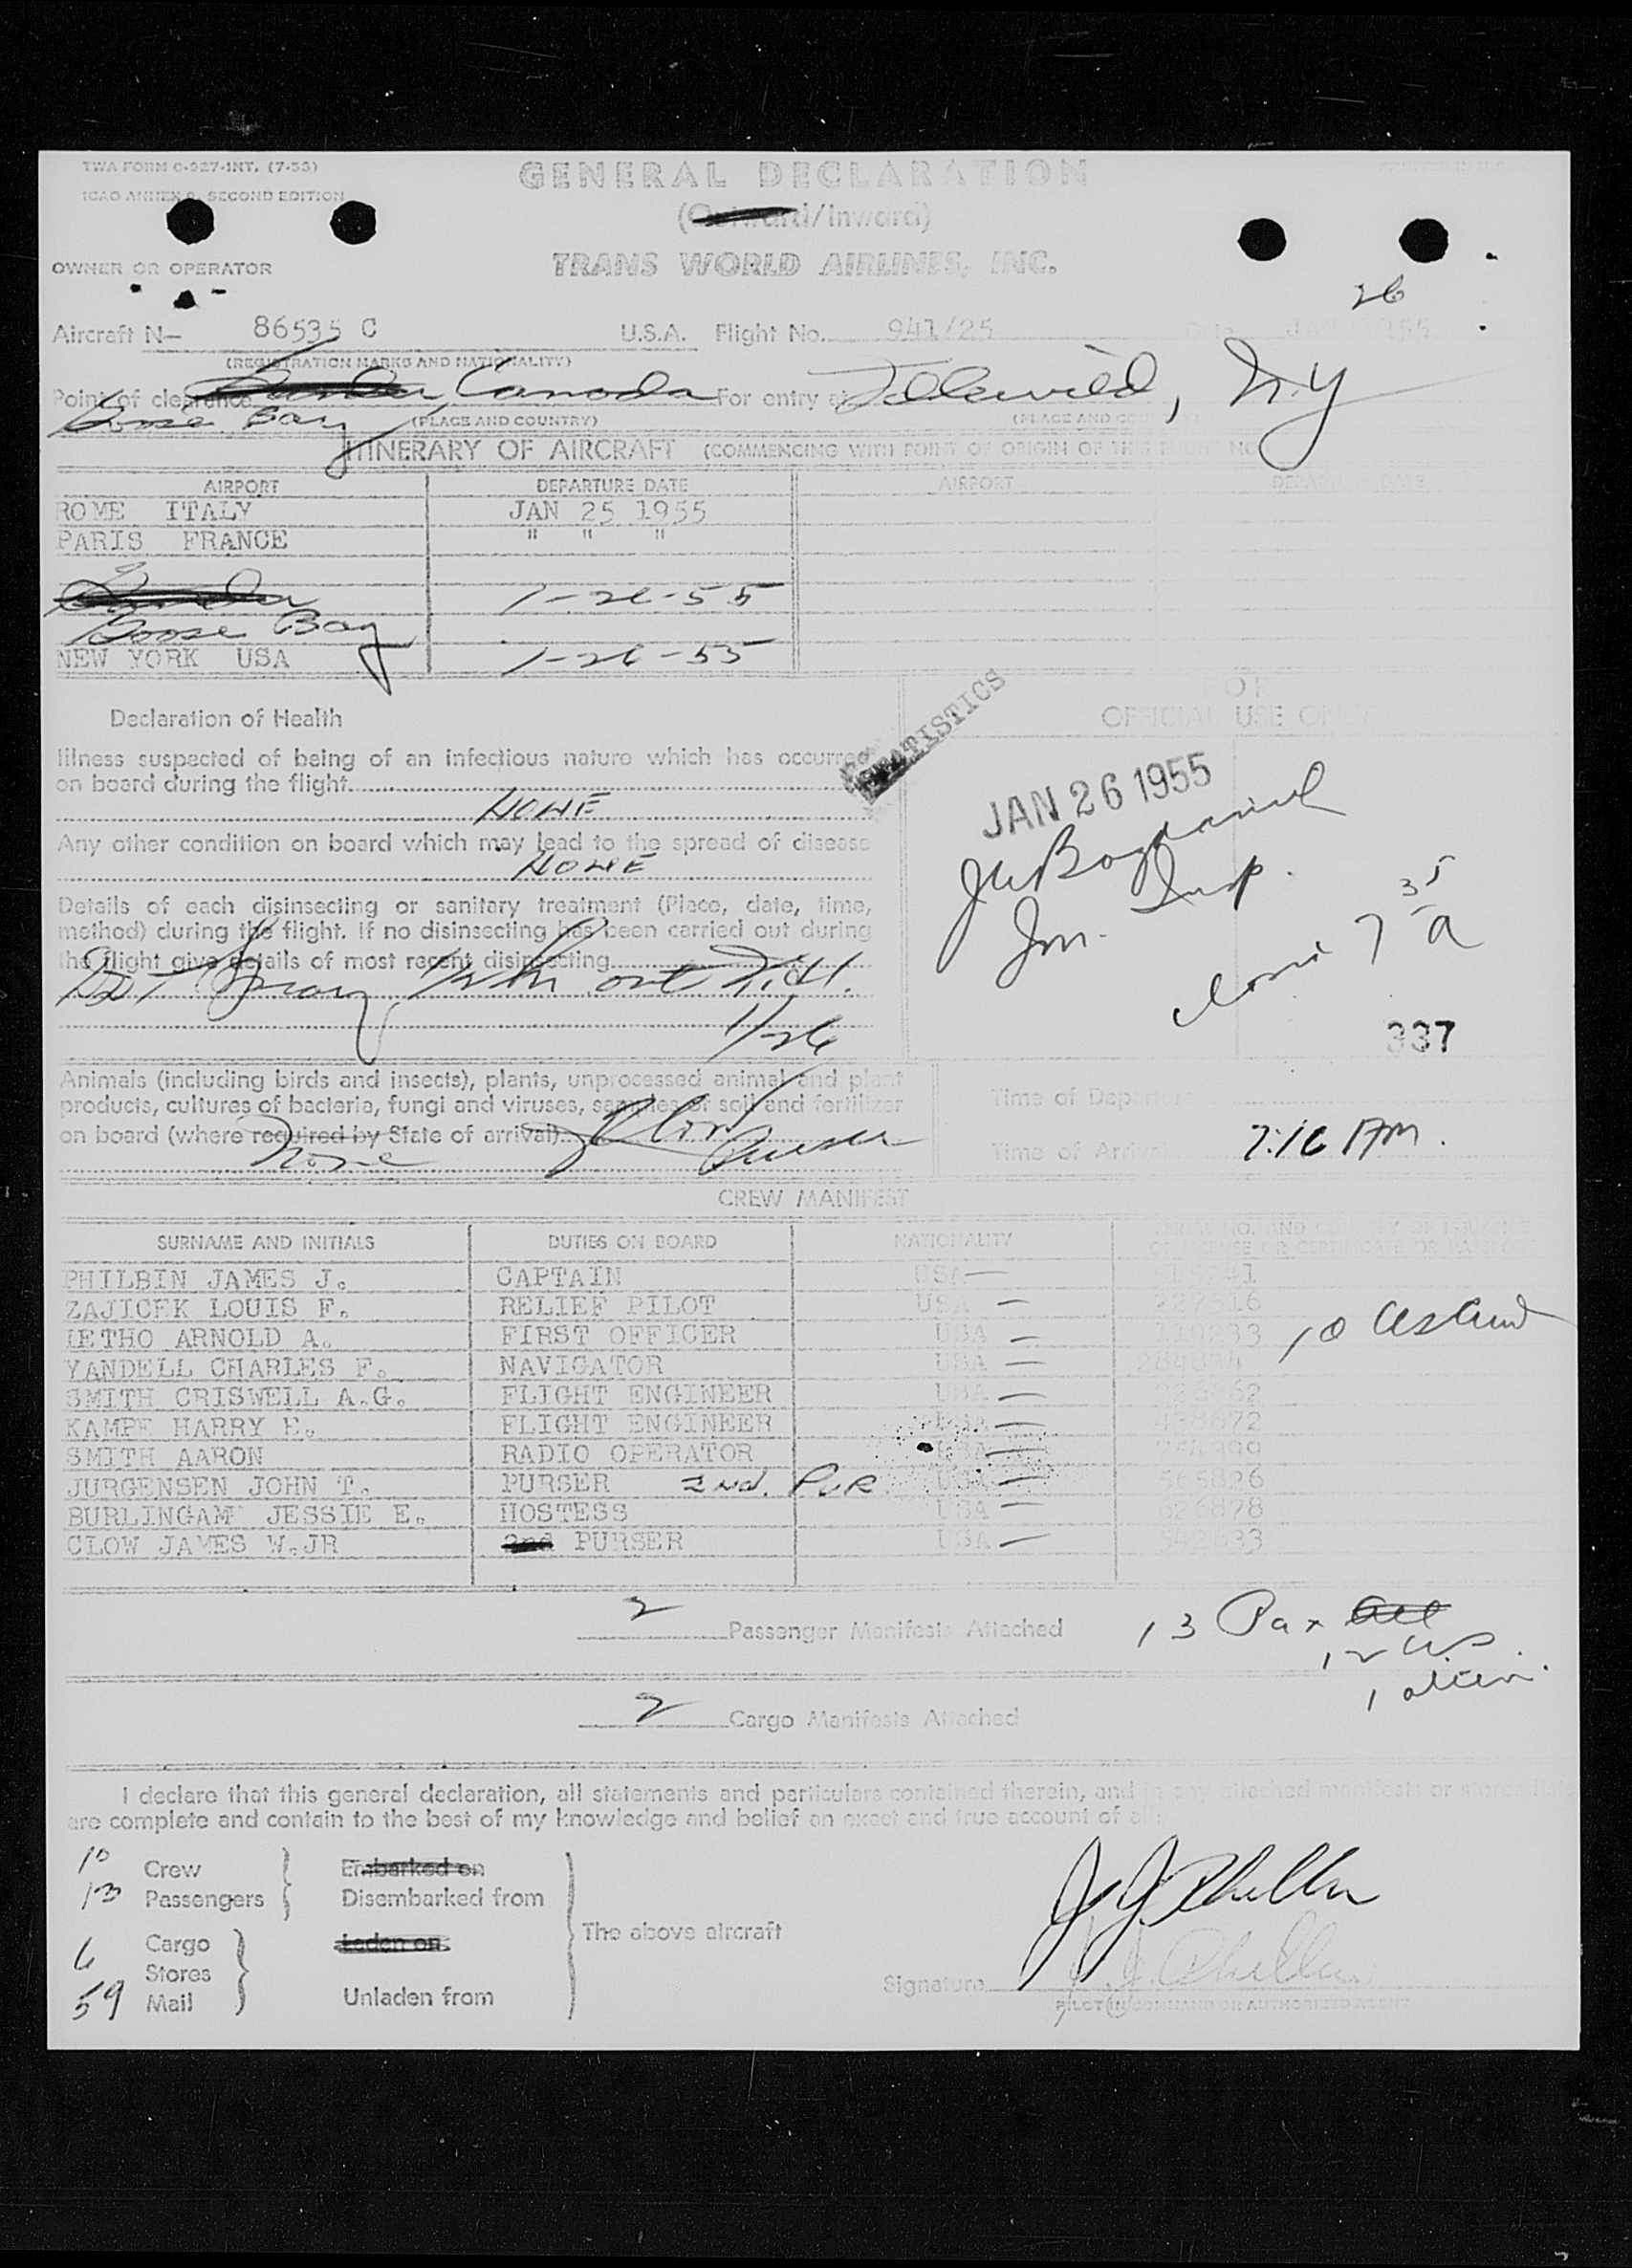 TWA FORM C-927-INT. (7-53)
GENERAL DECLARATION
ICAO ANNEX 9, SECOND EDITION
(Outward/Inward)
OWNER OR OPERATOR
TRANS WORLD AIRLINES, INC.
26
Aircraft N— 86535 C U.S.A. Flight No. 941/25 Date JAN 1955
(REGISTRATION MARKS AND NATIONALITY)
Point of clearance Gander, Canada For entry at Idlewild, N.Y
Goose Bay (PLACE AND COUNTRY) (PLACE AND
ITINERARY OF AIRCRAFT (COMMENCING WITH POINT OF ORIGIN OF
AIRPORT DEPARTURE DATE AIRPORT DEPARTURE DATE
ROME ITALY JAN 25 1955
PARIS FRANCE " " "
Gander 1-26-55
Goose Bay
NEW YORK USA 1-26-55
STATISTICS
FOR
OFFICIAL USE ONLY
Declaration of Health
Illness suspected of being of an infectious nature which has occurred
on board during the flight
NONE
JAN 26 1955
Any other condition on board which may lead to the spread of disease
NONE
Insp.
Imm.
7 35 a
Details of each disinsecting or sanitary treatment (Place, date, time,
method) during the flight. If no disinsecting has been carried out during
the flight give details of most recent disinsecting
DDT Spray 1/2 hr out
1/26
337
Animals (including birds and insects), plants, unprocessed animal and plant
products, cultures of bacteria, fungi and viruses, samples of soil and fertilizer
on board (where required by State of arrival)
None Clow Purser
Time of Departure
Time of Arrival 7:16 AM.
CREW MANIFEST
SURNAME AND INITIALS DUTIES ON BOARD NATIONALITY
PHILBIN JAMES J. CAPTAIN USA —
ZAJICEK LOUIS F. RELIEF PILOT USA —
IETHO ARNOLD A. FIRST OFFICER USA —
10
YANDELL CHARLES F. NAVIGATOR USA —
SMITH CRISWELL A.G. FLIGHT ENGINEER USA —
KAMPF HARRY E. FLIGHT ENGINEER USA —
SMITH AARON RADIO OPERATOR USA —
JURGENSEN JOHN T. PURSER 2nd. PUR USA — 565826
BURLINGAME JESSIE E. HOSTESS USA —
CLOW JAMES W.JR 2nd PURSER USA —
2 Passenger Manifests Attached 13 Pax
12 US
1 alien.
2 Cargo Manifests Attached
I declare that this general declaration, all statements and particulars contained therein, and in any attached manifests or
are complete and contain to the best of my knowledge and belief an exact and true account of all
10 Crew Embarked on
13 Passengers Disembarked from
The above aircraft
6 Cargo Laden on
Stores
59 Mail Unladen from
J J Philbin
Signature J. J. Philbin
PILOT IN COMMAND OR AUTHORIZED AGENT